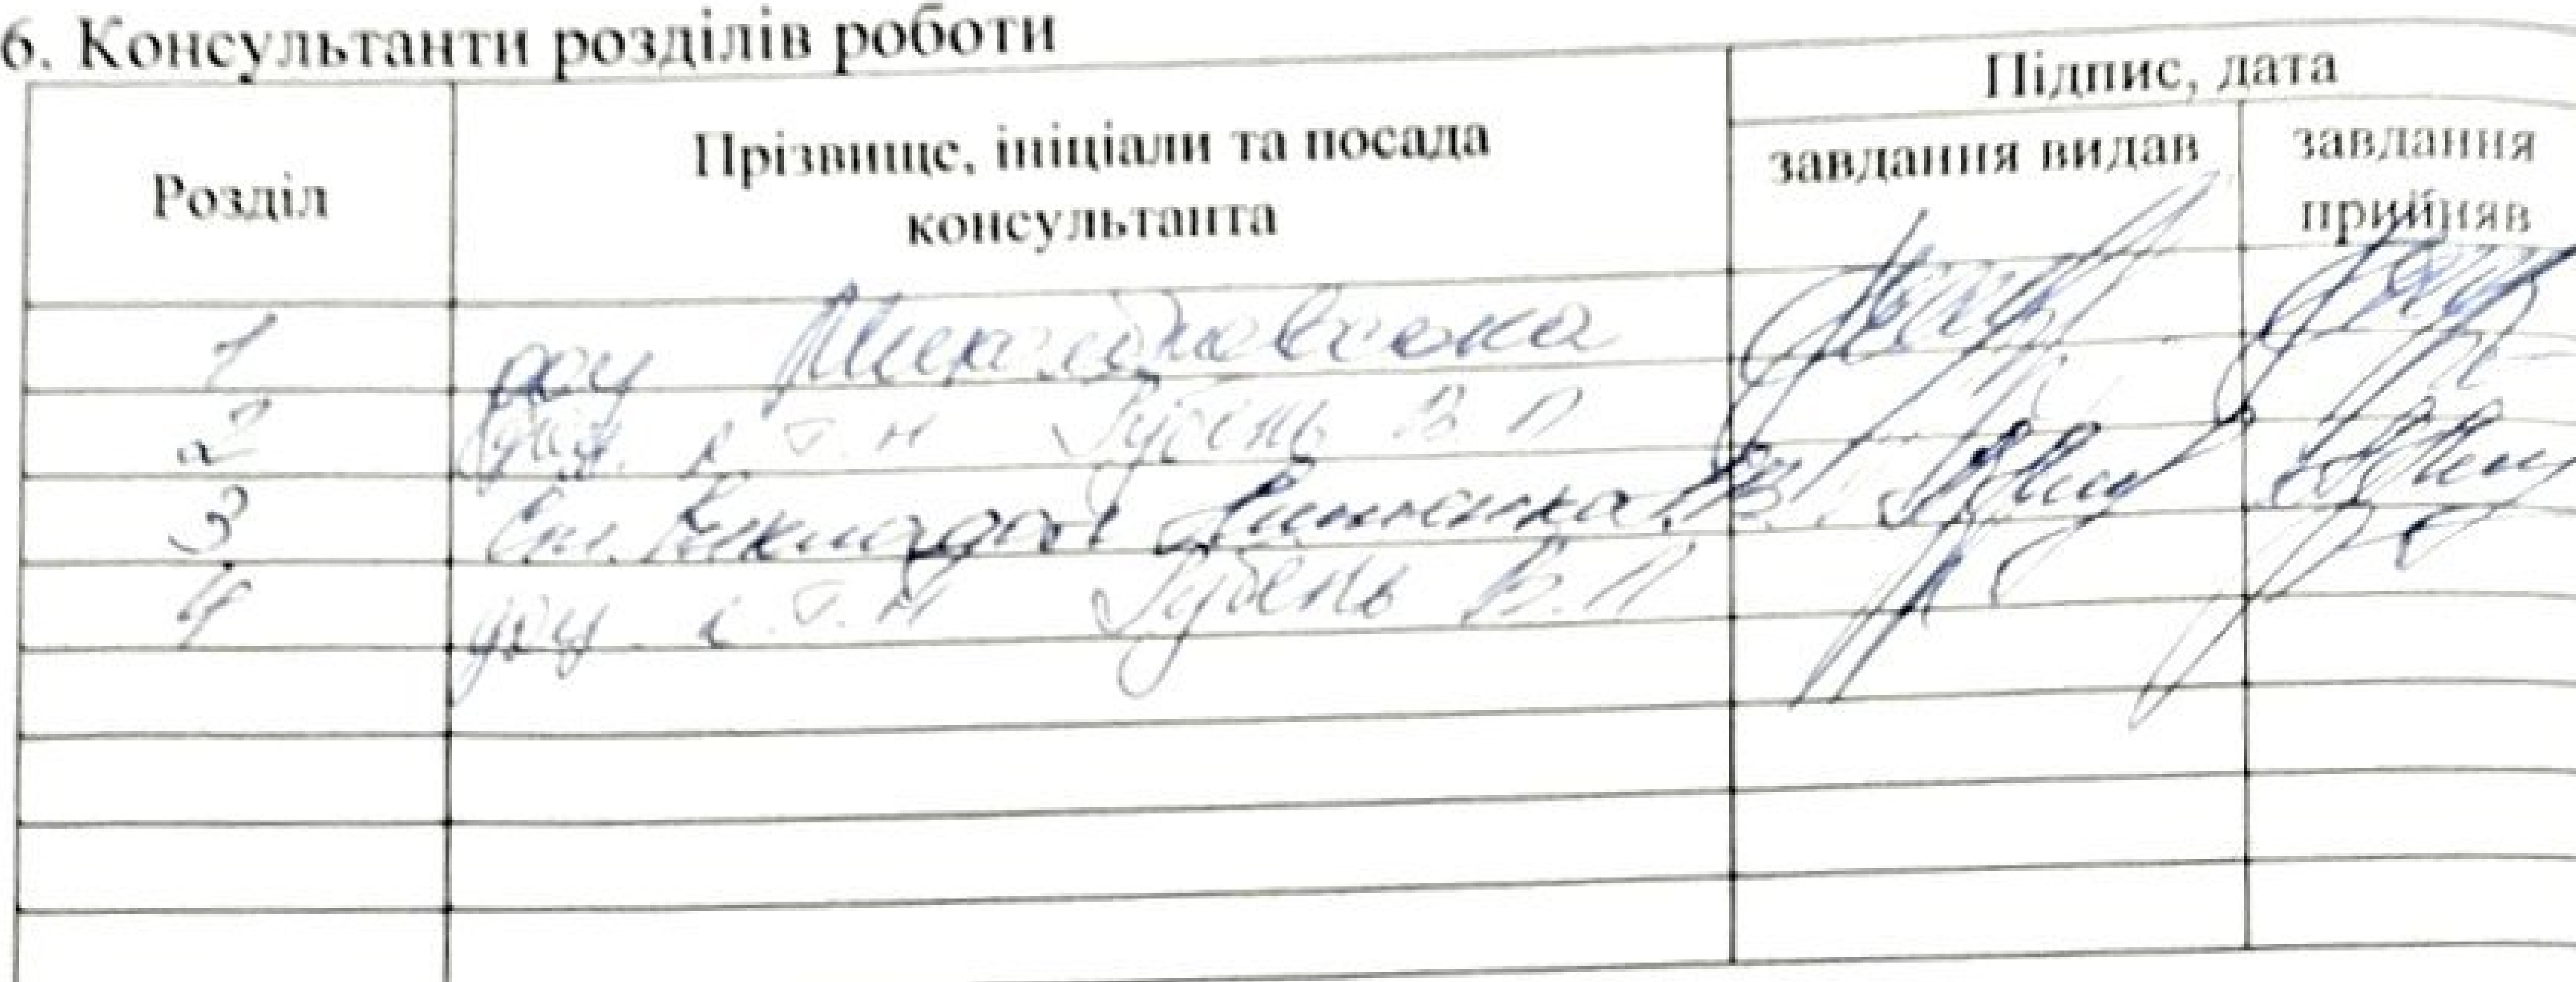 6. Консультанти розділів роботи
Розділ
Прізвище, ініціали та посада
консультанта
Підпис, дата
завдання видав
завдання
прийняв
1 доц
2 доц. к.т.н Губень В П
3 Ст. Викладач
4 доц. к.т.н Губень В.П